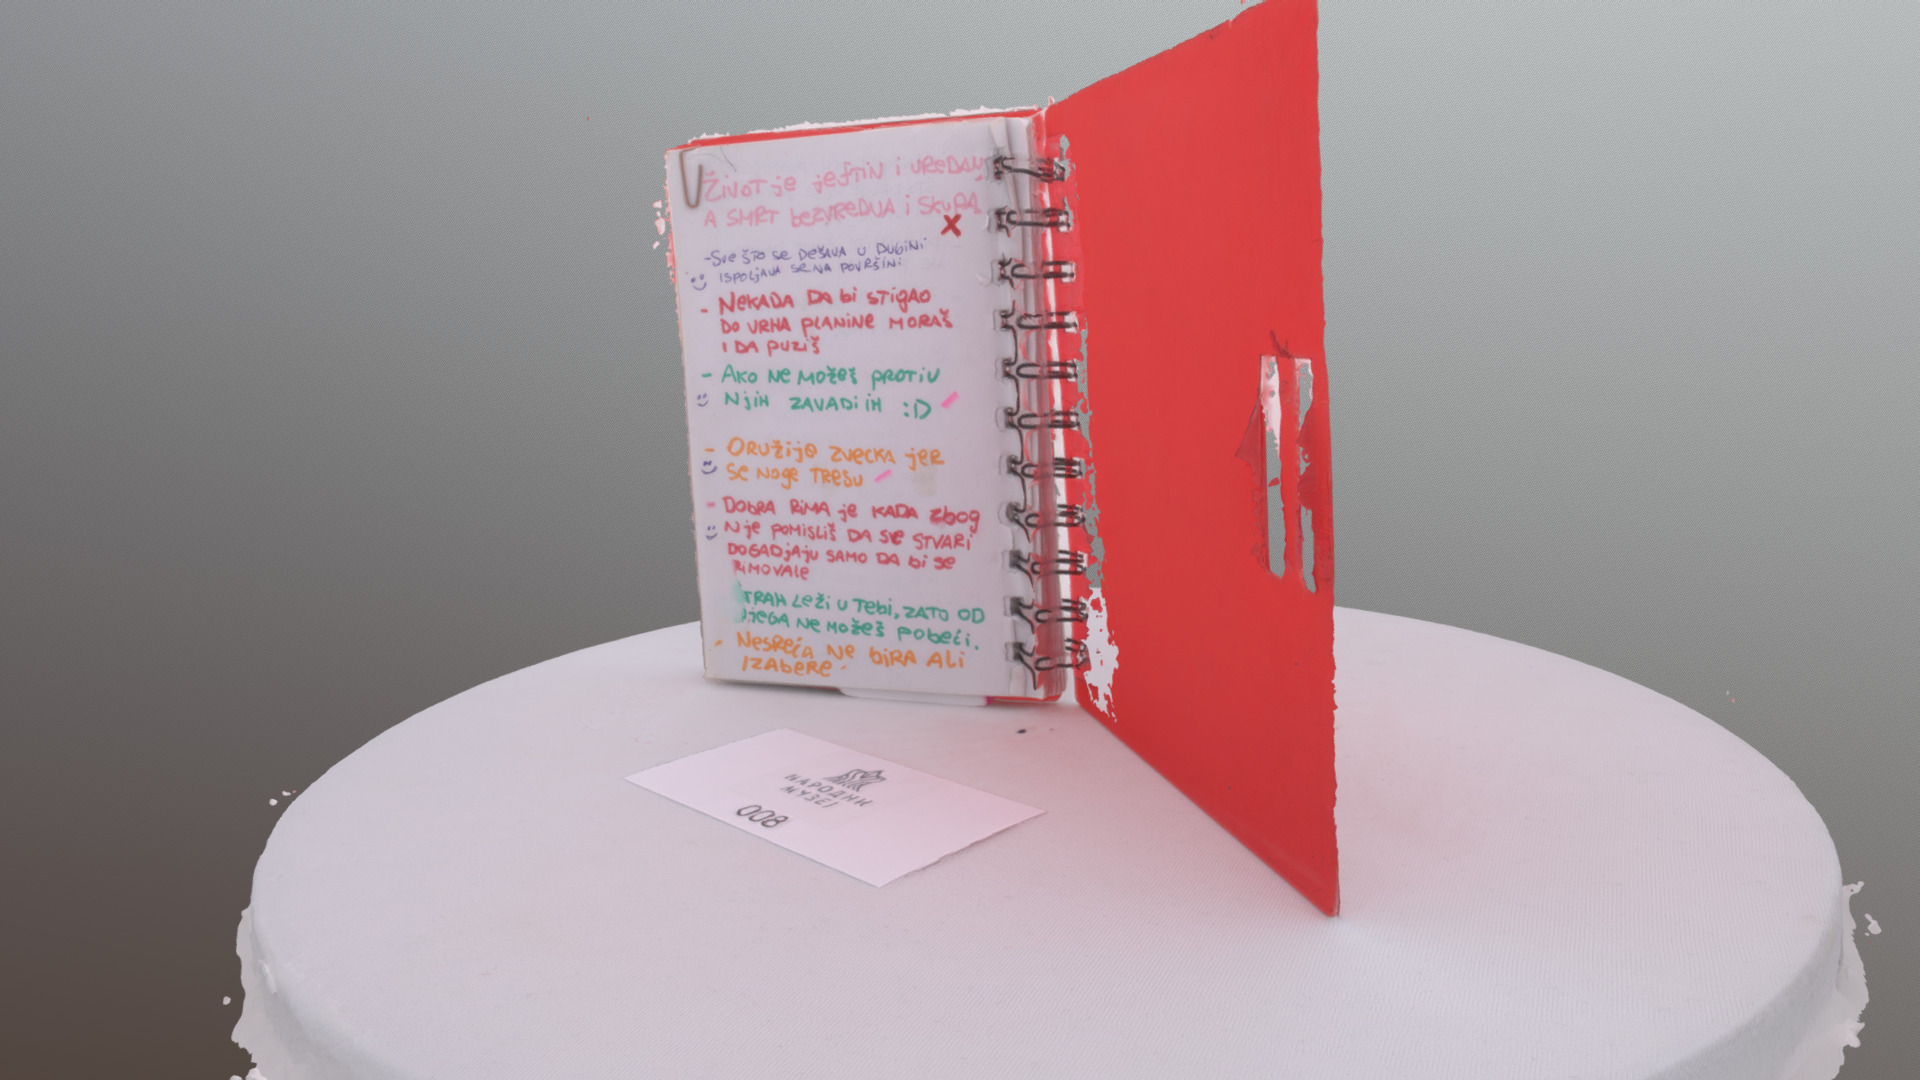 ŽIVOT je jeftiN i VReDAN
A SMRT bezVReDNA i SkuPA
x
-Sve što se Dešava u Dubini
ispoljava se na površini
- NekADA DA bi STigAO
DO VRHA plANiNe MORAš
I DA puziš
- AkO Ne MOžeš pROTiV
Njih ZAVADi iH :D
- ORUžije zvecka jer
Se Noge TResu
- DObRA RiMA je KADA zbog
Nje pomisliš DA se STVARi
DOGADjAju SAMO DA bi se
RiMOVAle
TRAH Leži u Tebi, ZATO OD
Njega Ne MOžeš pobeći.
- Nesreća Ne biRA Ali
IZAbeRe -
НАРОДНИ
МУЗЕЈ
008